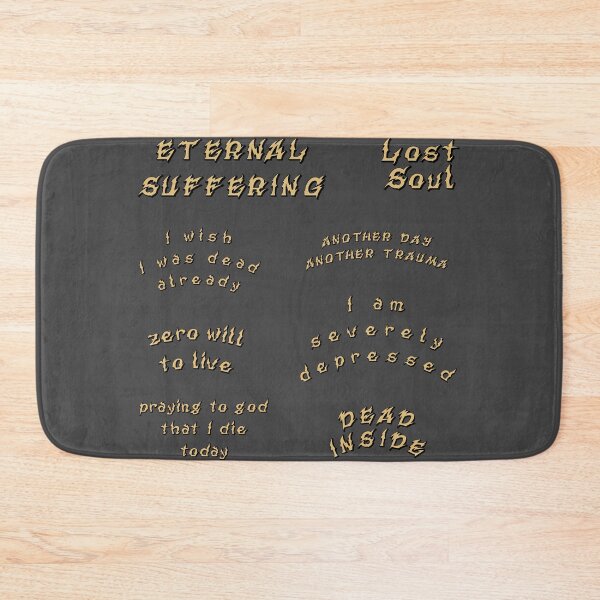 ETERNAL
SUFFERING
Lost
Soul
I wish
I was dead
already
ANOTHER DAY
ANOTHER TRAUMA
I am
severely
depressed
zero will
to live
praying to god
that I die
today
DEAD
INSIDE